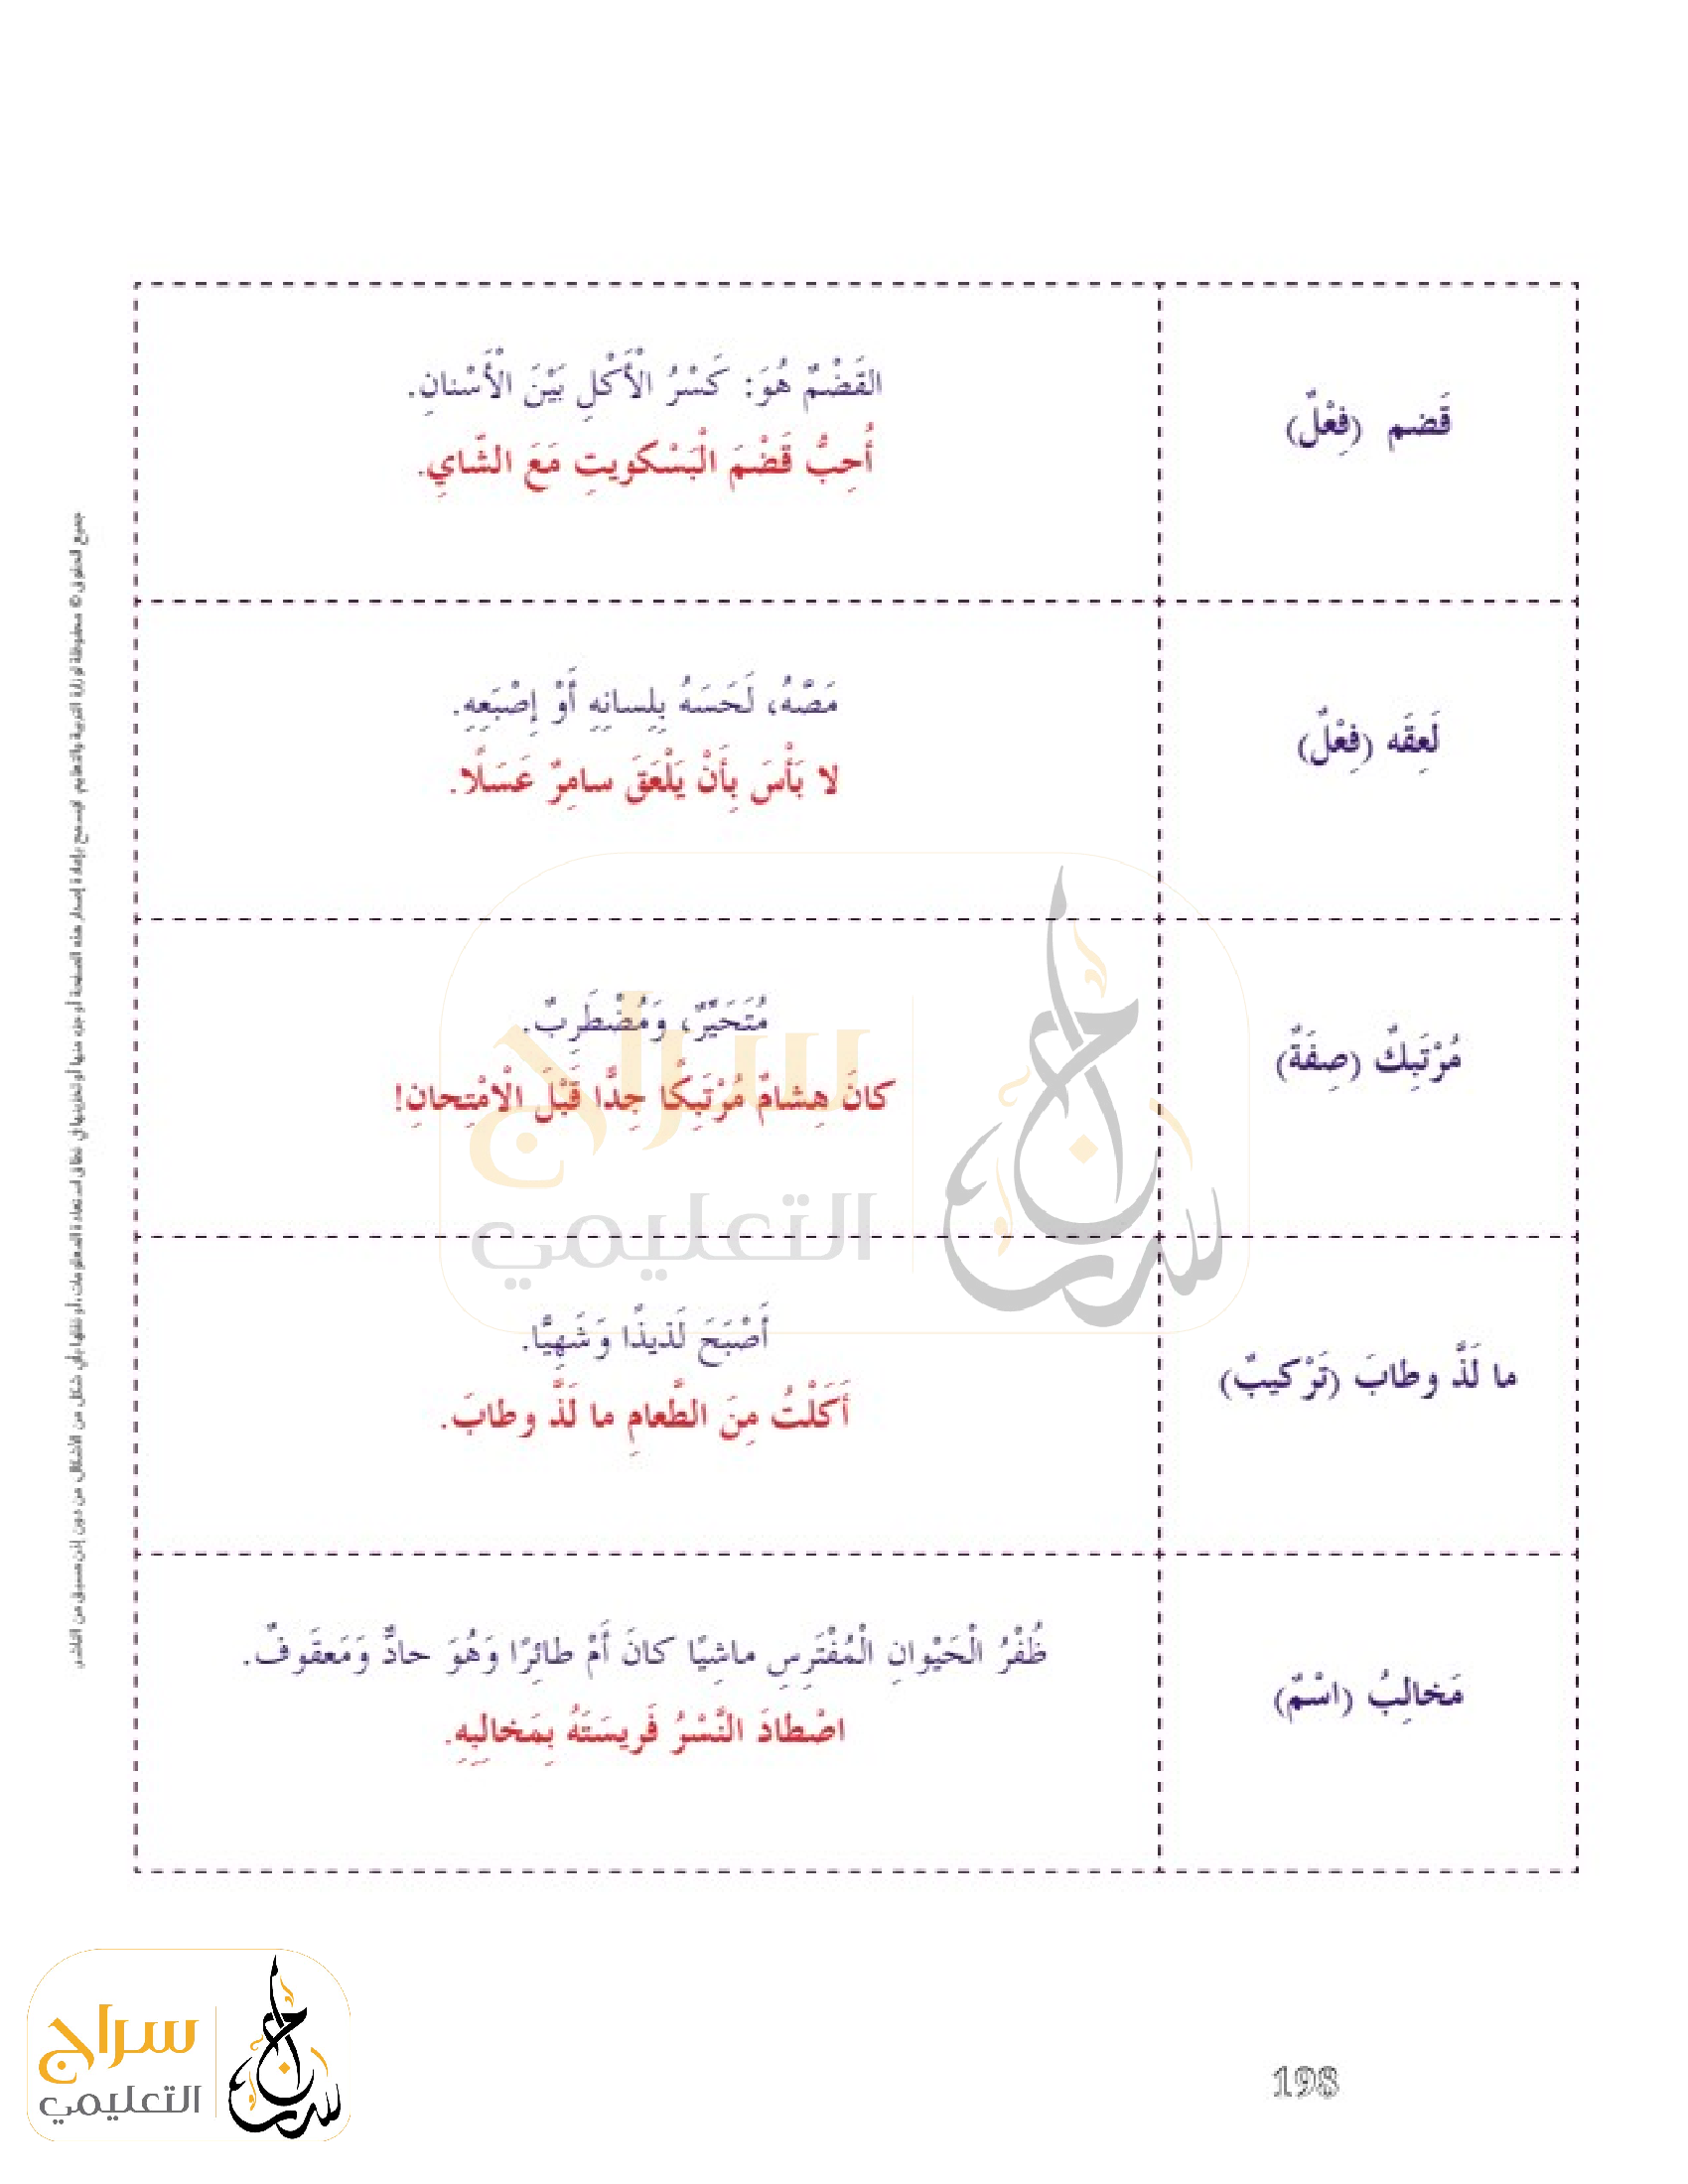 قَضم (فِعْلٌ)
القَضْمُ هُوَ: كَسْرُ الْأَكْلِ بَيْنَ الْأَسْنانِ.
أُحِبُّ قَضْمَ الْبَسْكويتِ مَعَ الشّايِ.
لَعِقَه (فِعْلٌ)
مَصَّهُ، لَحَسَهُ بِلِسانِهِ أَوْ إِصْبَعِهِ.
لا بَأْسَ بِأَنْ يَلْعَقَ سامِرٌ عَسَلًا.
مُرْتَبِكٌ (صِفَةٌ)
مُتَحَيِّرٌ، وَمُضْطَرِبٌ.
كانَ هِشامٌ مُرْتَبِكًا جِدًّا قَبْلَ الْامْتِحانِ!
ما لَذَّ وطابَ (تَرْكيبٌ)
أَصْبَحَ لَذيذًا وَشَهِيًّا.
أَكَلْتُ مِنَ الطَّعامِ ما لَذَّ وطابَ.
مَخالِبُ (اسْمٌ)
ظُفْرُ الْحَيْوانِ الْمُفْتَرِسِ ماشِيًا كانَ أَمْ طائِرًا وَهُوَ حادٌّ وَمَعقَوفٌ.
اصْطادَ النَّسْرُ فَريسَتَهُ بِمَخالِبِهِ.
جميع الحقوق © محفوظة لوزارة التربية والتعليم لا يسمح بإعادة إصدار هذه الصفحة أو جزء منها أو تخزينها في نطاق استعادة المعلومات، أو نقلها بأي شكل من الأشكال من دون إذن مسبق من الناشر
سراج
التعليمي
سراج
التعليمي
198